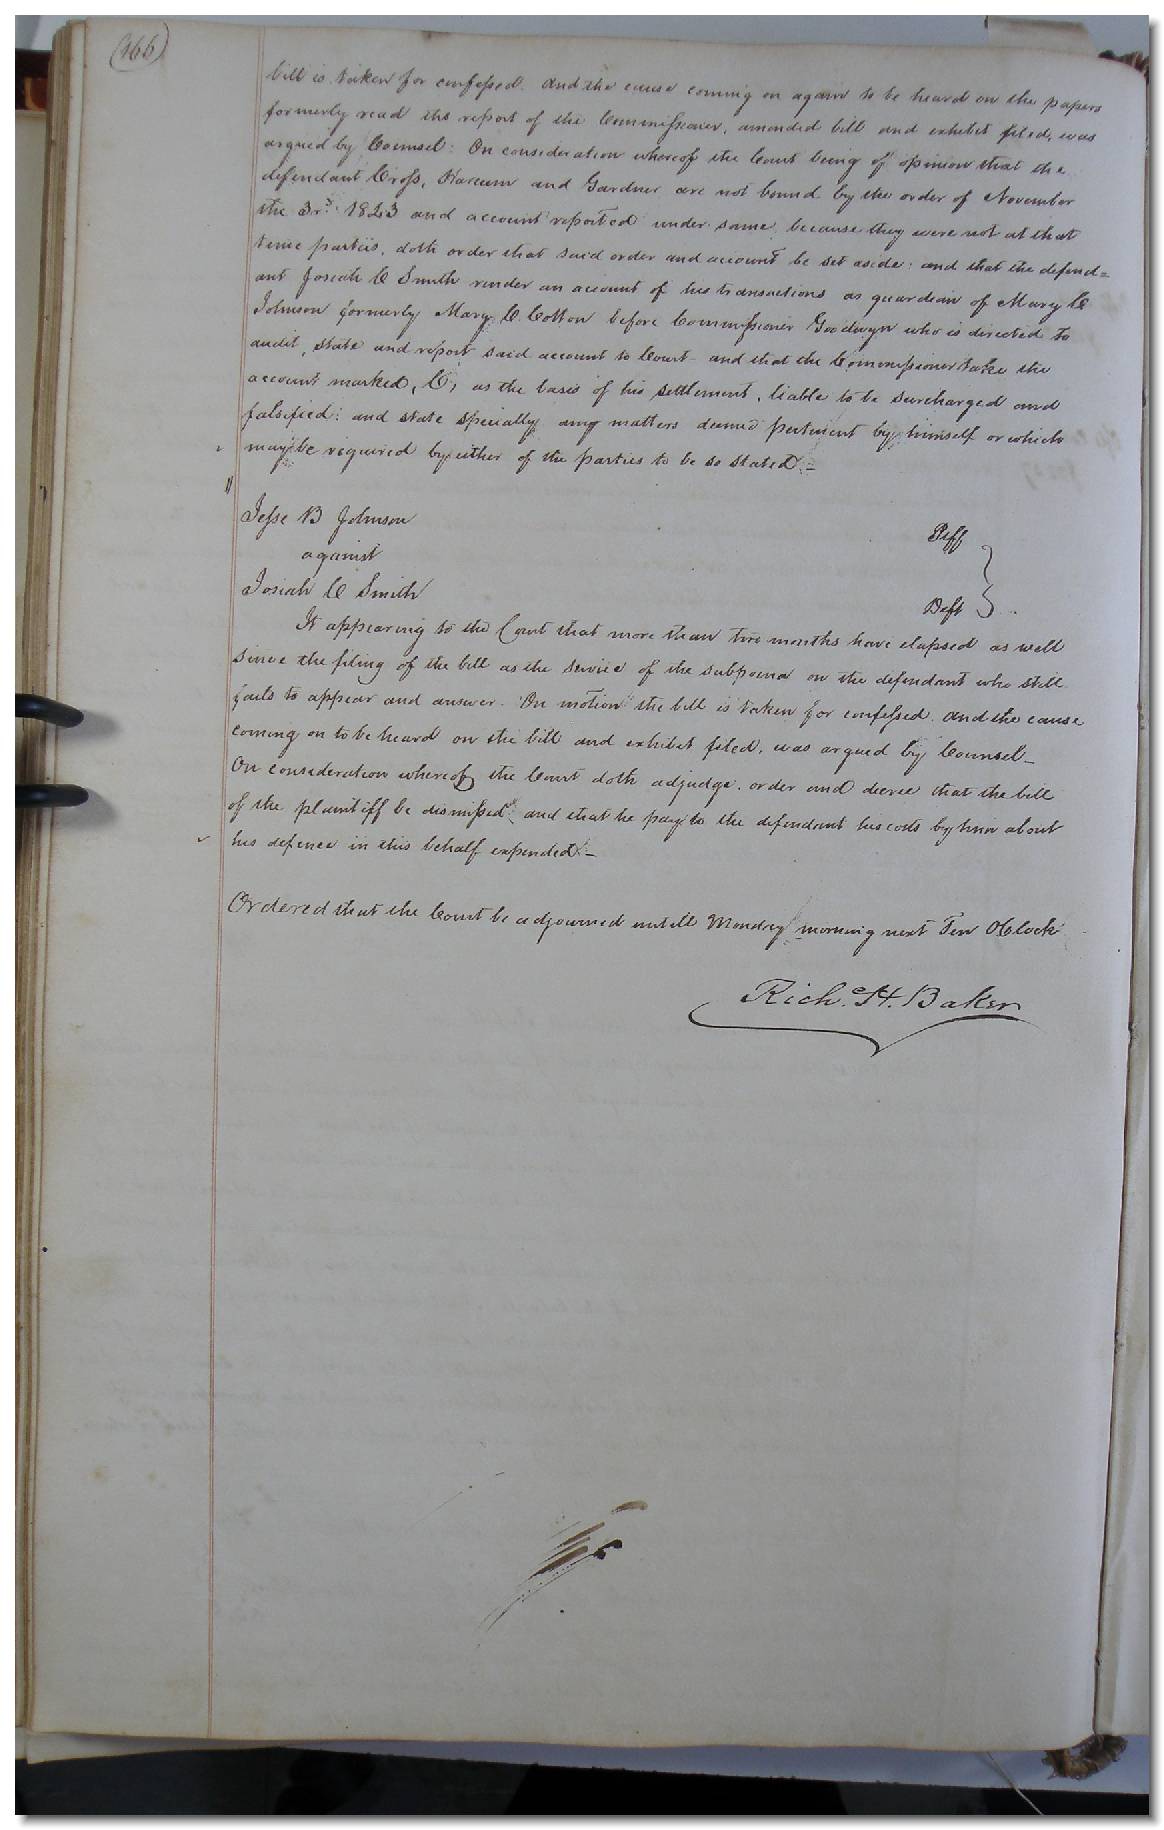 (166)
bill is taken for confessed. and the cause coming on again to be heard on the papers
formerly read the report of the Commissioner, amended bill and exhibit filed, was
argued by Counsel: On consideration whereof the Court being of opinion that the
defendant Cross, and Gardner are not bound by the order of November
the 3rd. 1823 and account reported under same, because they were not at that
time parties, doth order that said order and account be set aside: and that the defend=
ant Josiah C Smith render an account of his transactions as guardian of Mary C
Johnson formerly Mary C. Cotton before Commissioner Goodwyn who is directed to
audit, state and report said account to Court - and that the Commissioner take the
account marked, C, as the basis of his settlement, liable to be surcharged and
falsified: and state specially any matters deemed pertinent by himself or which
may be required by either of the parties to be so stated.-
Jesse B Johnson Plff
against
Josiah C Smith Deft
It appearing to the Court that more than two months have elapsed as well
since the filing of the bill as the service of the subpoena on the defendant who still
fails to appear and answer. On motion the bill is taken for confessed. and the cause
coming on to be heard on the bill and exhibit filed, was argued by Counsel-
On consideration whereof the Court doth adjudge, order and decree that the bill
of the plaintiff be dismissed and that he pay to the defendant his costs by him about
his defence in this behalf expended.-
Ordered that the Court be adjourned untill Monday morning next Ten OClock
Rich. H. Baker